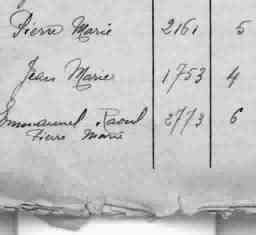 Pierre Marie 2161 5
Jean Marie 1753 4
Emmanuel Raoul 2773 6
Pierre Marie